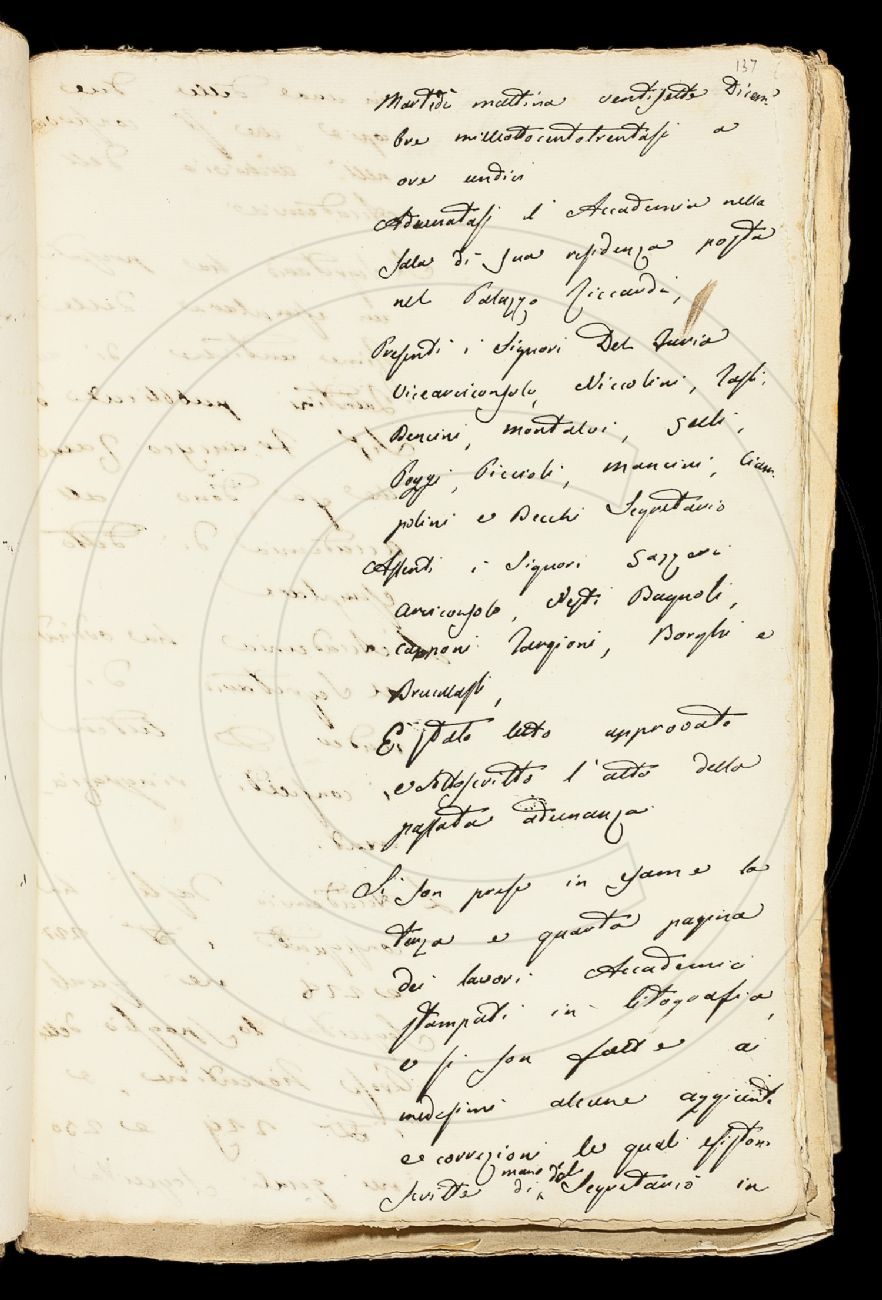 137
Martedì mattina ventisette Dicem-
bre milleottocentotrentasei a
ore undici
Adunatasi l'Accademia nella
Sala di sua residenza posta
nel Palazzo Riccardi,
Presenti i Signori Del Furia
Vicearciconsolo, Niccolini, Tassi,
Bencini, Montalvi, Selli,
Poggi, Piccioli, Mancini, Ciam-
polini e Becchi Segretario
Assenti i Signori Gazzeri
Arciconsolo, Nesti Bagnoli,
Capponi Targioni, Borghi e
Brucalassi,
E' stato letto approvato
e sottoscritto l'atto della
passata adunanza
Si son prese in esame la
terza e quarta pagina
dei lavori Accademici
stampati in litografia,
e si son fatte ai
medesimi alcune aggiunte
e correzioni le quali esiston
mano del
scritte di Segretario in